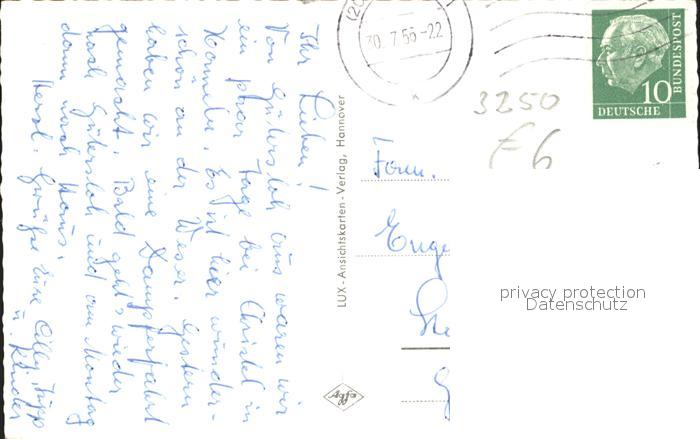 Ihr Lieben!
Von Gütersloh aus waren wir
ein paar Tage bei Christel in
Hameln. Es ist hier wunder-
schön an der Weser. Gestern
haben wir eine Dampferfahrt
gemacht. Bald geht's wieder
nach Gütersloh und am Montag
dann nach Haus.
Herzl. Grüße Eure Cilly, Jupp
u. Kinder
LUX-Ansichtskarten-Verlag, Hannover
Agfa
30.7.56-22
10
DEUTSCHE
BUNDESPOST
3250
Fam.
privacy protection
Datenschutz